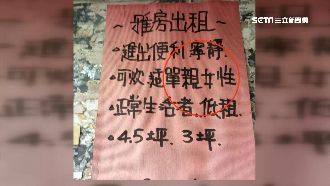 SETN 三立新聞網
~雅房出租~
•進出便利 寧靜
•可炊 適單親女性
•正常生活者 低租.
•4.5坪. 3坪.